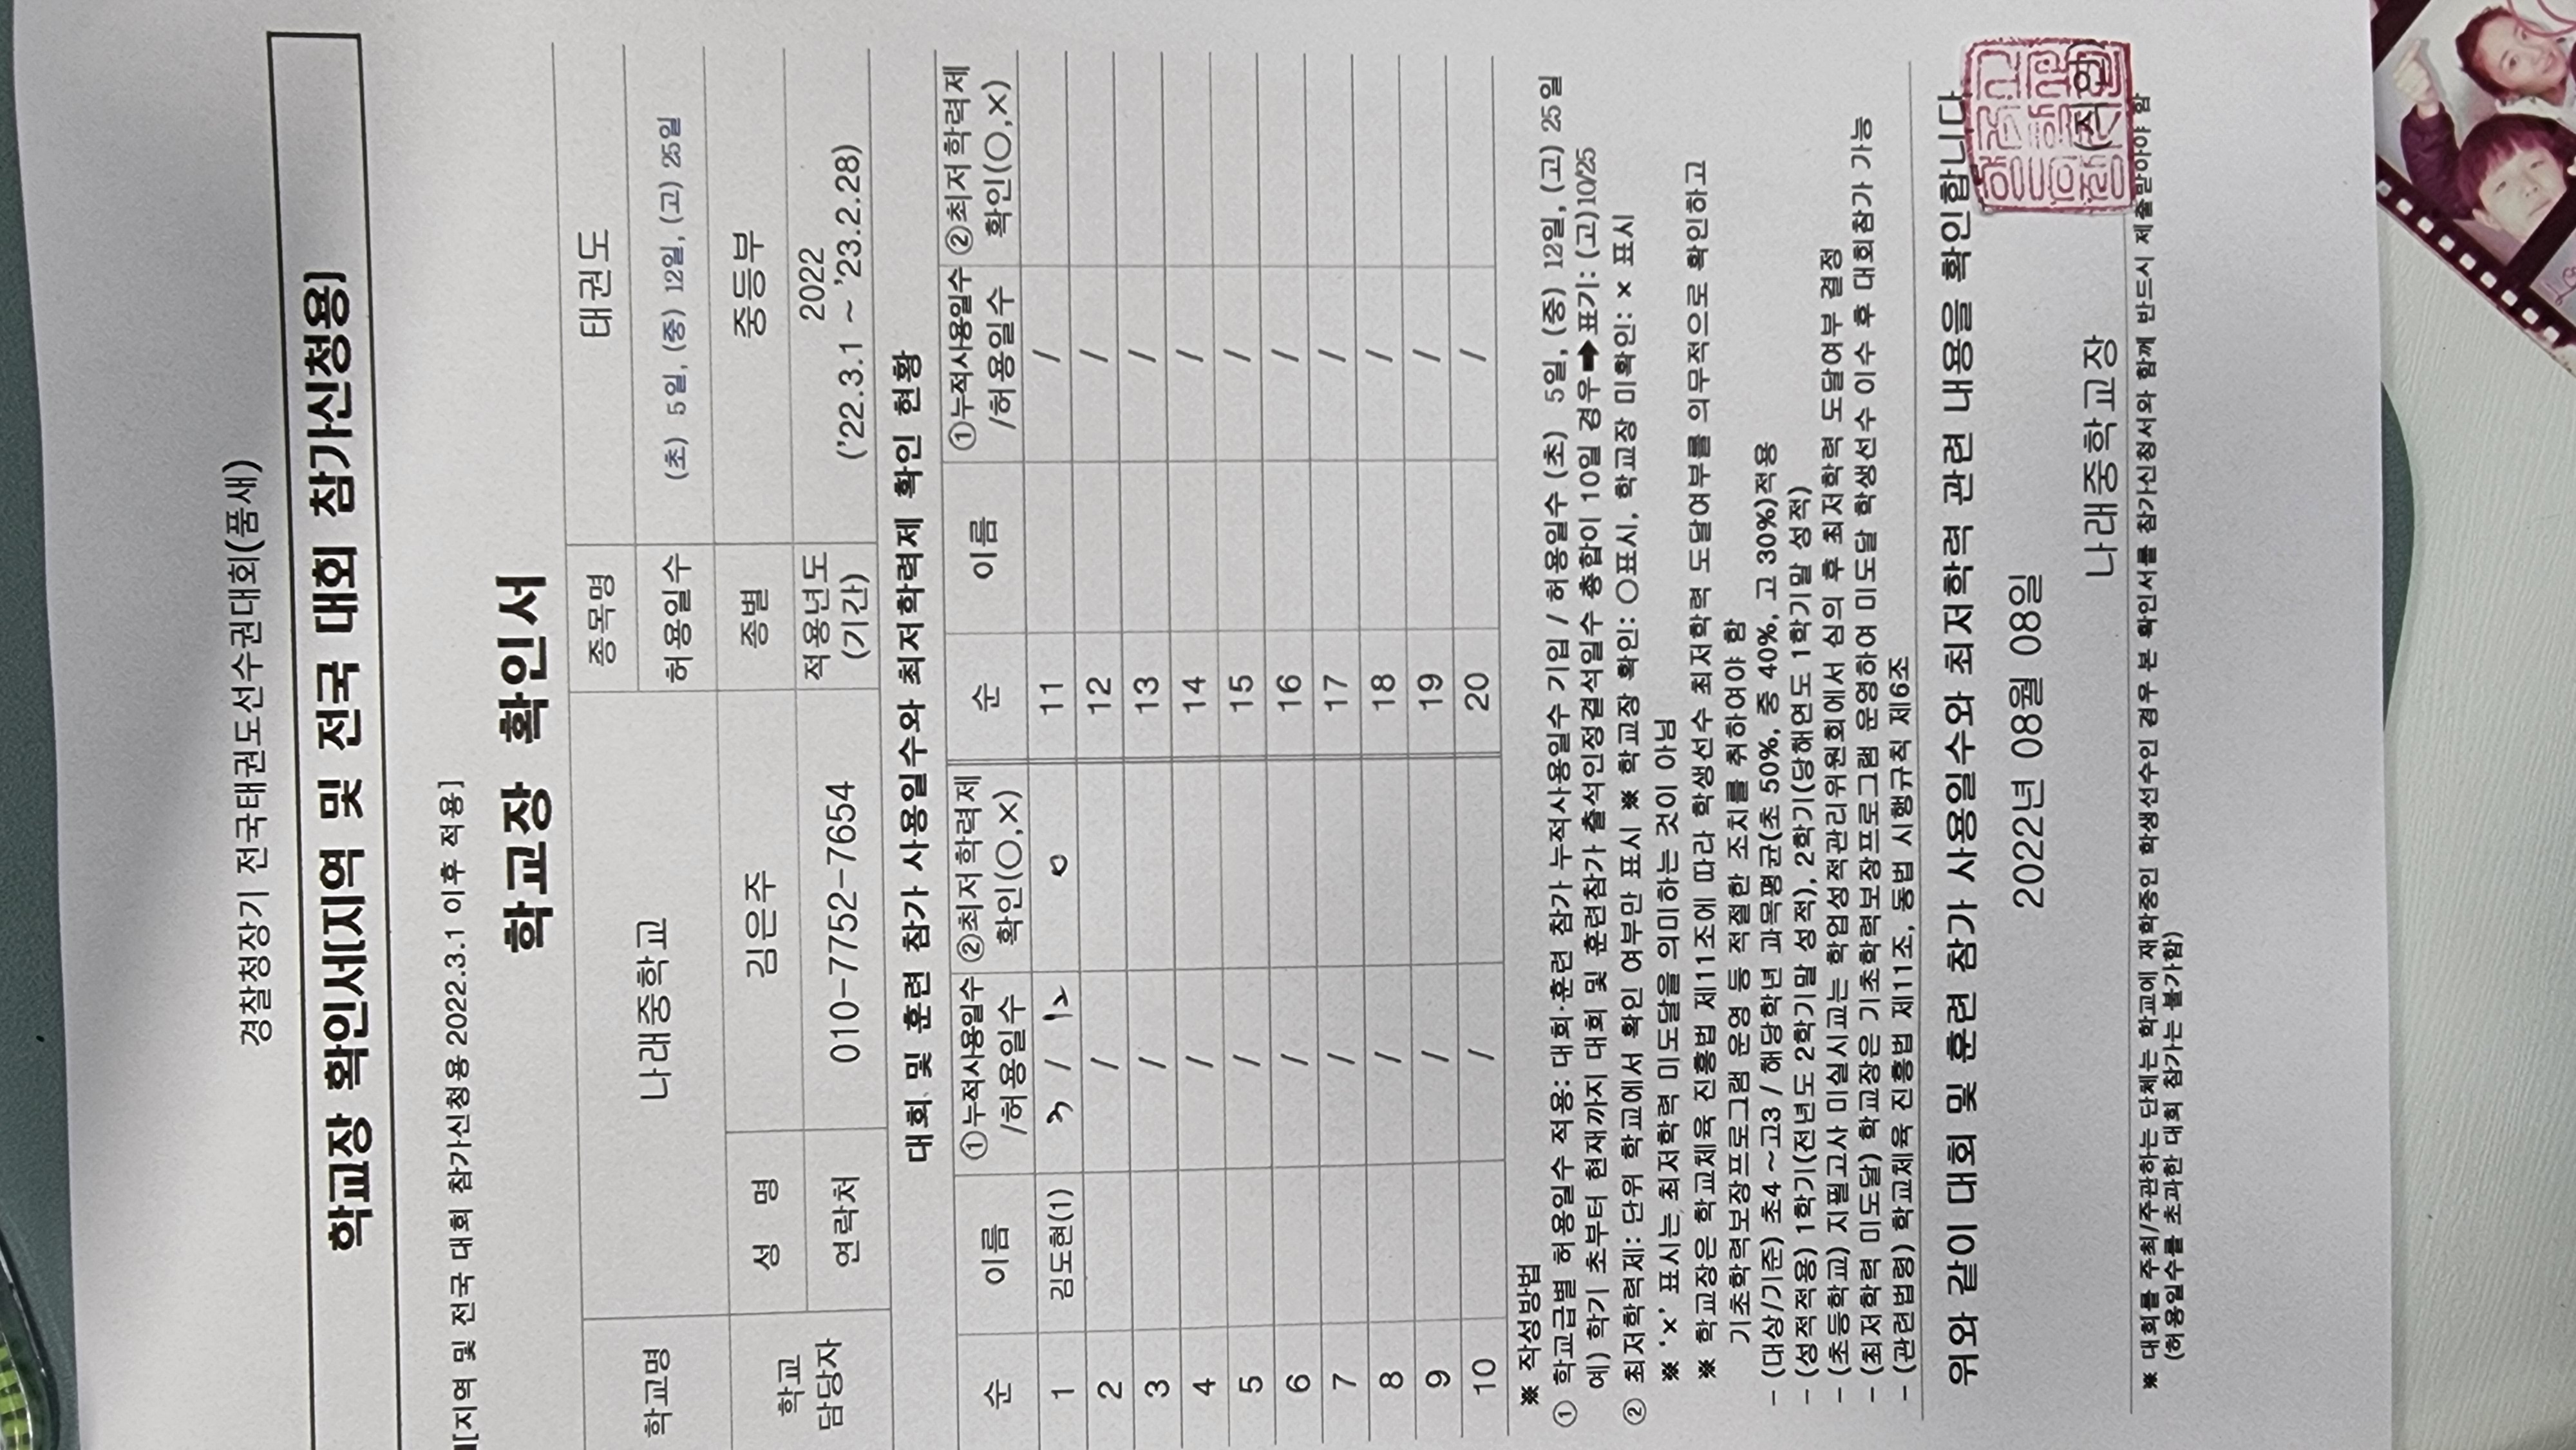 경찰청장기 전국태권도선수권대회(품새)
학교장 확인서[지역 및 전국 대회 참가신청용)
[지역 및 전국 대회 참가신청용 2022.3.1 이후 적용]
학교장 확인서
학교명 나래중학교 종목명 태권도
허용일수 (초) 5일, (중) 12일, (고) 25일
학교 담당자 성 명 김은주 종별 중등부
연락처 010-7752-7654 적용년도 (기간) 2022 ('22.3.1 ~ '23.2.28)
대회 및 훈련 참가 사용일수와 최저학력제 확인 현황
순 이름 ①누적사용일수 /허용일수 ②최저학력제 확인(○,×) 순 이름 ①누적사용일수 /허용일수 ②최저학력제 확인(○,×)
1 김도현(1) 3 / 12 o 11 /
2 / 12 /
3 / 13 /
4 / 14 /
5 / 15 /
6 / 16 /
7 / 17 /
8 / 18 /
9 / 19 /
10 / 20 /
※ 작성방법
① 학교급별 허용일수 적용: 대회·훈련 참가 누적사용일수 기입 / 허용일수 (초) 5일, (중) 12일, (고) 25일
예) 학기 초부터 현재까지 대회 및 훈련참가 출석인정결석일수 총합이 10일 경우➡표기: (고)10/25
② 최저학력제: 단위 학교에서 확인 여부만 표시 ※ 학교장 확인: ○표시, 학교장 미확인: × 표시
※ '×' 표시는 최저학력 미도달을 의미하는 것이 아님
※ 학교장은 학교체육 진흥법 제11조에 따라 학생선수 최저학력 도달여부를 의무적으로 확인하고
기초학력보장프로그램 운영 등 적절한 조치를 취하여야 함
- (대상/기준) 초4 ~고3 / 해당학년 과목평균(초 50%, 중 40%, 고 30%)적용
- (성적적용) 1학기(전년도 2학기말 성적), 2학기(당해연도 1학기말 성적)
- (초등학교) 지필고사 미실시교는 학업성적관리위원회에서 심의 후 최저학력 도달여부 결정
- (최저학력 미도달) 학교장은 기초학력보장프로그램 운영하여 미도달 학생선수 이수 후 대회참가 가능
- (관련법령) 학교체육 진흥법 제11조, 동법 시행규칙 제6조
위와 같이 대회 및 훈련 참가 사용일수와 최저학력 관련 내용을 확인합니다.
2022년 08월 08일
나래중학교장 (직인)
※ 대회를 주최/주관하는 단체는 학교에 재학중인 학생선수인 경우 본 확인서를 참가신청서와 함께 반드시 제출받아야 함
(허용일수를 초과한 대회 참가는 불가함)